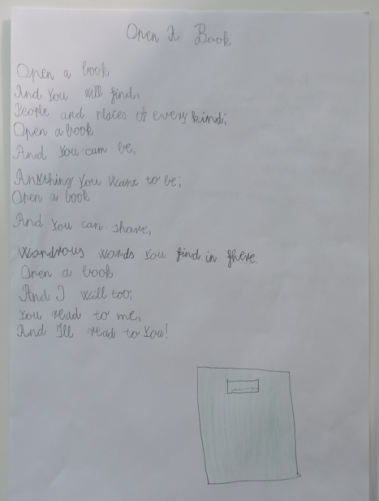 Open A Book
Open a book
And you will find,
People and places of every kind;
Open a book
And you can be,
Anything you want to be;
Open a book
And you can share,
Wondrous words you find in there
Open a book
And I will too;
You read to me,
And I'll read to you!